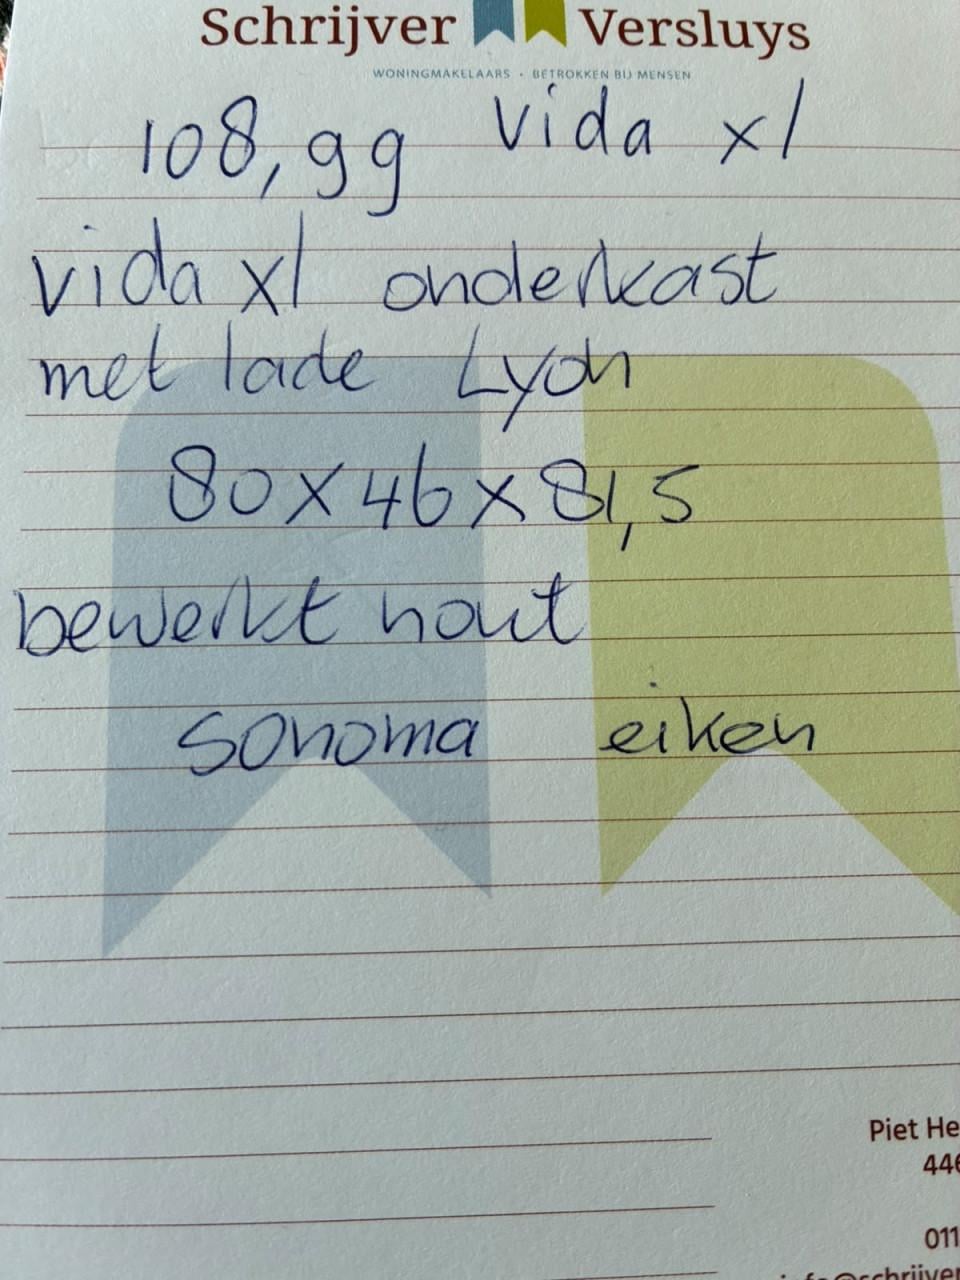 Schrijver Versluys
WONINGMAKELAARS • BETROKKEN BIJ MENSEN
108,99 vida xl
vida xl onderkast
met lade Lyon
80x46x81,5
bewerkt hout
sonoma eiken
Piet He
446
011